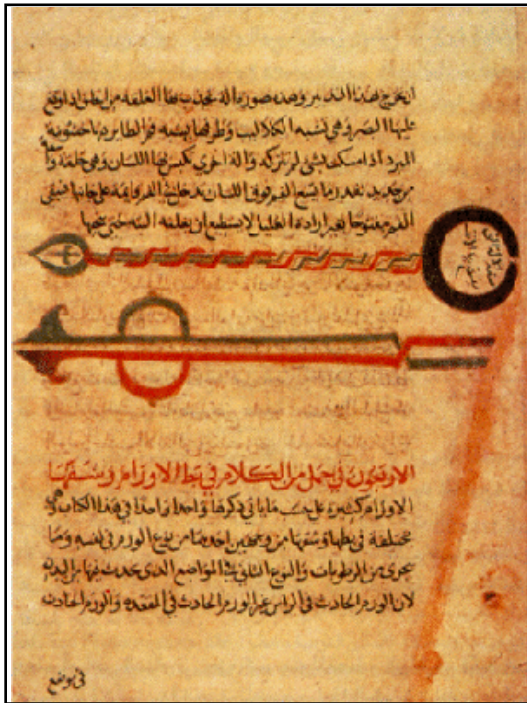 انخرج بهذا التدبير وهذه صورة الة تجذب بها العلقة من الحلق اذا وقع
عليها البصر وهي تشبه الكلاليب وطرفها يشبه فم الطاير فيه خشونة
المبرد اذا مسكت بشي لم تتركه والة اخري يكبس بها اللسان وهي حلقة
من حديد بقدر ما يسع الفم فوق اللسان يدخل في الفم قايمة علي جانبها فيبقي
الفم مفتوحا بغير ارادة العليل لا يستطيع ان يغلقه البتة حتي ينحيها
الاربعون في جمل من الكلام في بط الاورام وشقها
الاورام كثيرة علي ما ياتي ذكرها واحدا واحدا في هذا الكتاب وهي
مختلفة في بطها وشقها من وجهين احدهما من نوع الورم في نفسه وما
يحوي من الرطوبات والنوع الثاني في المواضع الذي تحدث فيها من البدن
لان الورم الحادث في الراس غير الورم الحادث في المقعدة والورم الحادث
في موضع